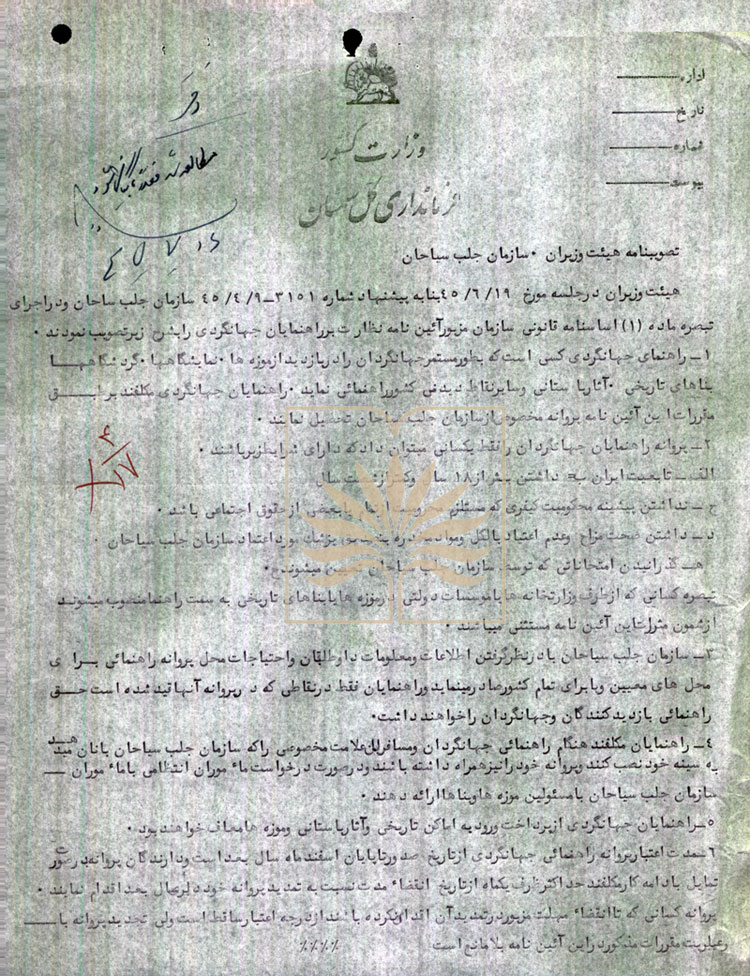 اداره
تاریخ
شماره
پیوست
وزارت کشور
فرمانداری کل سمنان
دفتر
مطالعه شد
تصویبنامه هیئت وزیران ۰ سازمان جلب سیاحان
هیئت وزیران درجلسه مورخ ۴۵/۶/۱۹ بنابه پیشنهاد شماره ۳۱۵۱–۴۵/۴/۹ سازمان جلب سیاحان ودراجرای
تبصره ماده (۱) اساسنامه قانونی سازمان مزبورآئین نامه نظارت برراهنمایان جهانگردی رابشرح زیرتصویب نمودند ۰
۱ــ راهنمای جهانگردی کسی است که بطورمستمرجهانگردان رادربازدیدازموزه ها ۰ نمایشگاهها ۰ گردشگاهها
بناهای تاریخی ۰ آثارباستانی وسایرنقاط دیدنی کشورراهنمائی نماید ۰ راهنمایان جهانگردی مکلفند برابق
مقررات این آئین نامه پروانه مخصوص ازسازمان جلب سیاحان تحصیل نمایند ۰
۲ــ پروانه راهنمایان جهانگردان رافقط بکسانی میتوان دادکه دارای شرایط زیرباشند ۰
الف ــ تابعیت ایران ب ــ داشتن بیش از ۱۸ سال وکمترازشصت سال
ج ــ نداشتن پیشینه محکومیت کیفری که مستلزم محرومیت ازتمام یابعضی ازحقوق اجتماعی باشد ۰
د ــ داشتن صحت مزاج وعدم اعتیاد بالکل ومواد مخدره پزشک مورداعتماد سازمان جلب سیاحان ۰
هــ گذرانیدن امتحاناتی که توسط سازمان جلب سیاحان تعیین میشوند ۰
تبصره کسانی که ازطرف وزارتخانه هایاموسسات دولتی درموزه هایابناهای تاریخی به سمت راهنمامنصوب میشوند
ازشمول مقررات این آئین نامه مستثنی میباشند ۰
۳ــ سازمان جلب سیاحان بادرنظرگرفتن اطلاعات ومعلومات داوطلبان واحتیاجات محل پروانه راهنمائی برای
محل های معین ویابرای تمام کشورصادرمینماید وراهنمایان فقط درنقاطی که درپروانه آنهاقیدشده است حق
راهنمائی بازدیدکنندگان وجهانگردان راخواهندداشت ۰
۴ــ راهنمایان مکلفند هنگام راهنمائی جهانگردان ومسافران علامت مخصوصی راکه سازمان جلب سیاحان بانان میدهد
به سینه خودنصب کنند وپروانه خودرانیزهمراه داشته باشند ودرصورت درخواست ماٴموران انتظامی یاماٴموران ــ
سازمان جلب سیاحان یامسئولین موزه هاوبناهاارائه دهند ۰
۵ــ راهنمایان جهانگردی ازپرداخت ورودیه اماکن تاریخی وآثارباستانی وموزه هامعاف خواهندبود ۰
۶ــ مدت اعتبارپروانه راهنمائی جهانگردی ازتاریخ صدورتاپایان اسفندماه سال بعداست ودارندگان پروانه درصورت
تمایل بادامه کارمکلفند حداکثرظرف یکماه ازتاریخ انقضاء مدت نسبت به تمدیدپروانه خود درهرسال بعداقدام نمایند ۰
پروانه کسانی که تاانقضاء مهلت مزبوردرتمدیدآن اقدامی نکرده باشند ازدرجه اعتبارساقط است ولی تجدیدپروانه باــ
رعایت مقررات مذکوردراین آئین نامه بلامانع است ٪٪٪٪